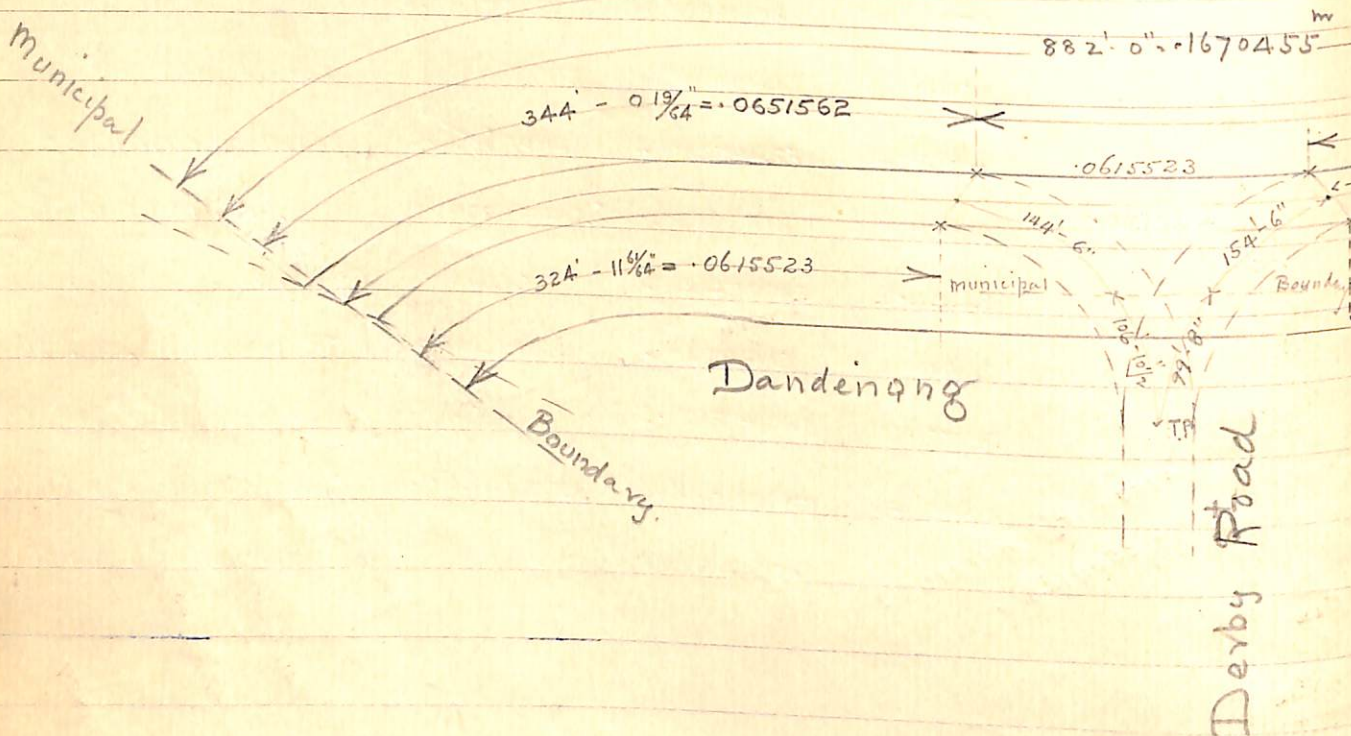 Municipal
m
882'. 0" = .1670455
344' - 0 19/64" = .0651562
.0615523
144'-6"
154'-6"
324' - 11 61/64" = .0615523
municipal
Boundary
99'-8"
Dandenong
T.P.
Boundary.
Derby Road